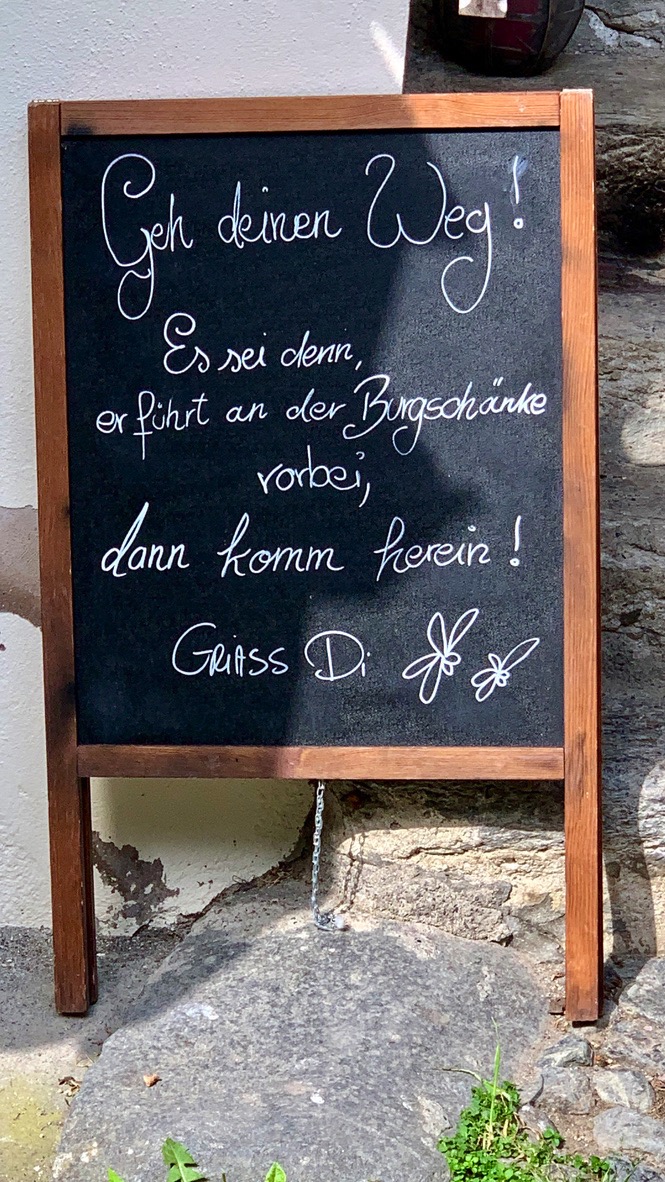 Geh deinen Weg!
Es sei denn,
er führt an der Burgschänke
vorbei,
dann komm herein!
GRIASS Di